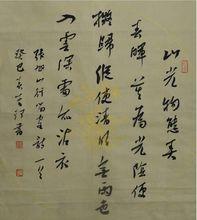 山光物態弄
春暉莫為輕陰便
擬歸縱使清明無雨色
入雲深處亦沾衣
張旭山行留客詩一首
癸巳書